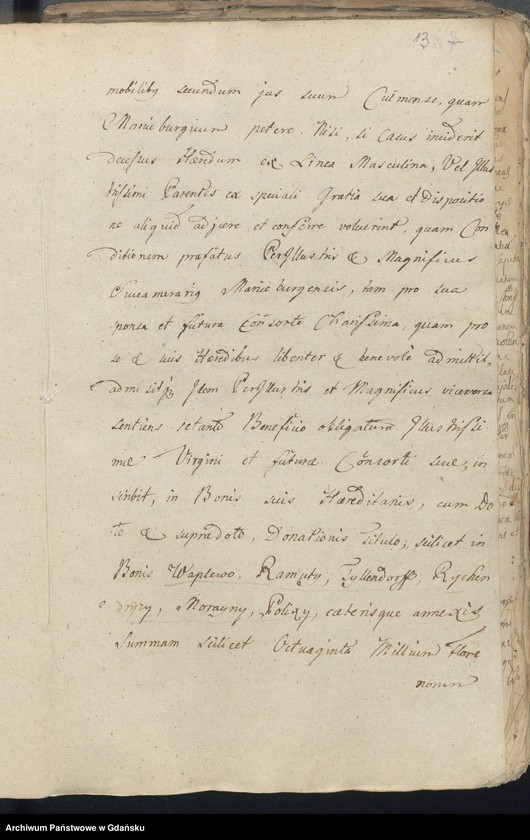 13
mobiliby secundum jus suum Culmense, quam
Marieburgicum petere. Nisi, si Casus inciderit
decessus Hæredum ex Linea Masculina, Vel Jllus
trissimi Parentes ex speciali Gratia sua et Dispositio
ne aliquid adjicere et conferre voluerint, quam Con
ditionem præfatus PerJllustris & Magnificus
Succamerariq Marieburgensis, tam pro sua
sponsa et futura Consorte Charissima, quam pro
se & suis Hæredibus libenter & benevole admittit,
admisitq Jdem PerJllustris et Magnificus viceversa
sentiens se tanto Beneficio obligatum Jllustrissi-
mæ Virgini et futuræ Consorti suæ, in
scribit, in Bonis suis Hæreditariis, cum Do
te & supradote, Donationis Titulo, scilicet in
Bonis Waplewo, Ramuty, Tyllendorff, Rychen
Morayny, Polixy, cæterisque annexis,
Summam scilicet Octuaginta Millium Flore
norum
Archiwum Państwowe w Gdańsku